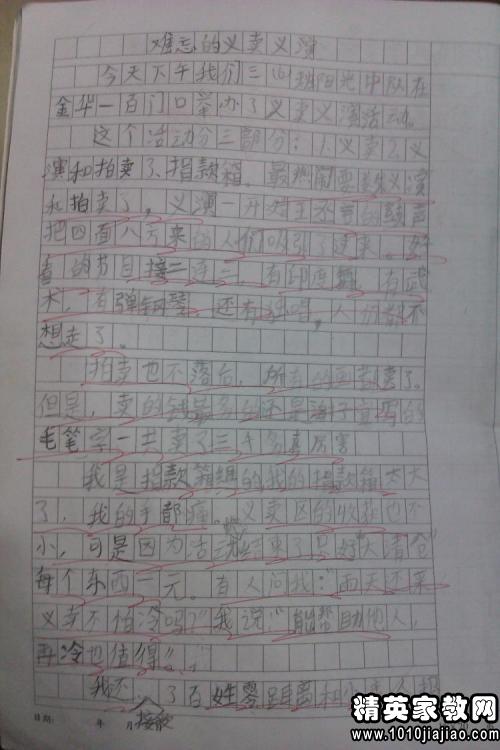 难忘的义卖义演
今天下午我们三(4)班阳光中队在
金华一百门口举办了义卖义演活动。
这个活动分三部分:1、义卖2、义
演和拍卖3、捐款箱。最热闹要数义演
和拍卖了,义演一开始王不可的鼓声
把四面八方来的人们吸引了过来。好
看的节目接二连三,有印度舞,有武
术,有弹钢琴,还有独唱,人们都不
想走了。
拍卖也不落后,所有的画都卖了。
但是,卖的钱最多的还是 写的
毛笔字一共卖了三千多真厉害
我是捐款箱组的我的捐款箱太大
了,我的手都痛。义卖区的收获也不
小,可是因为活动快结束了只好"大清仓"
每个东西一元。有人问我:"雨天还来
义卖不怕冷吗?"我说:"能帮助他人,
再冷也值得"。
我还 了百姓零距离和
接受
日期: 年 月
精英家教网
www.1010jiajiao.com